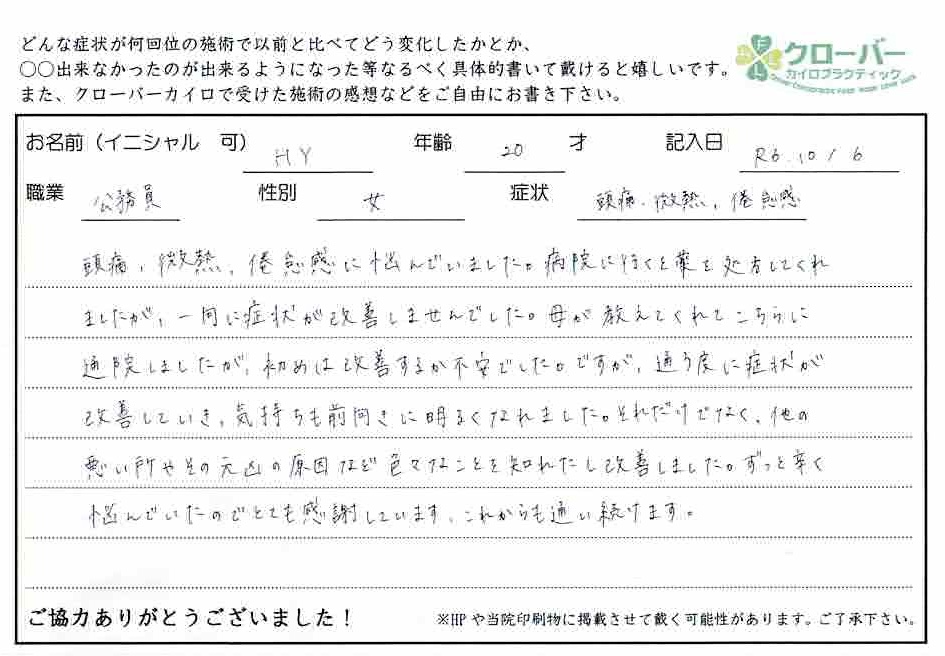 どんな症状が何回位の施術で以前と比べてどう変化したかとか、
〇〇出来なかったのが出来るようになった等なるべく具体的書いて戴けると嬉しいです。
また、クローバーカイロで受けた施術の感想などをご自由にお書き下さい。
クローバー
カイロプラクティック
お名前（イニシャル 可） HY 年齢 20 才 記入日 R6.10/6
職業 公務員 性別 女 症状 頭痛、微熱、倦怠感
頭痛、微熱、倦怠感に悩んでいました。病院に行くと薬を処方してくれ
ましたが、一向に症状が改善しませんでした。母が教えてくれてこちらに
通院しましたが、初めは改善するか不安でした。ですが、通う度に症状が
改善していき、気持ちも前向きに明るくなれました。それだけでなく、他の
悪い所やその元凶の原因など色々なことを知れたし改善しました。ずっと辛く
悩んでいたのでとても感謝しています、これからも通い続けます。
ご協力ありがとうございました！
※HPや当院印刷物に掲載させて戴く可能性があります。ご了承下さい。